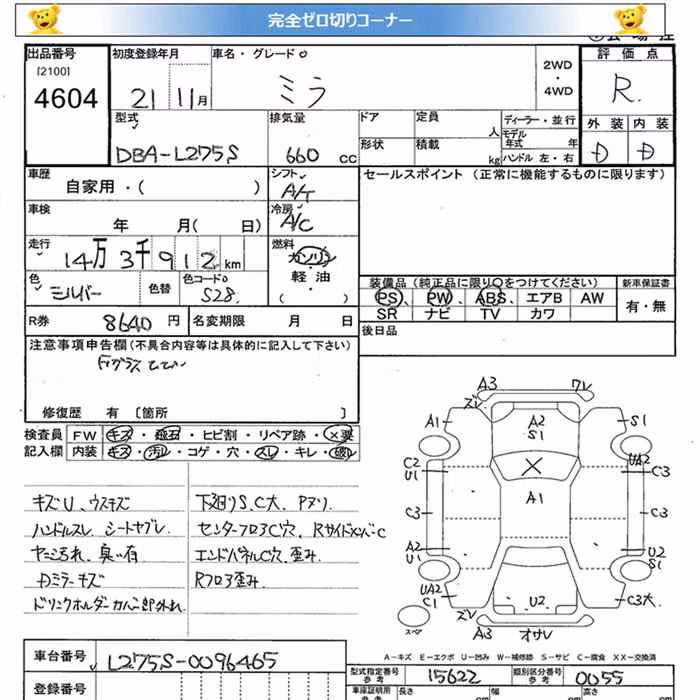 完全ゼロ切りコーナー
出品番号 初度登録年月 車名・グレード 2WD ・ 4WD 評価点
[2100]
4604 21 11月 ミラ R
型式 排気量 ドア 定員 人 ディーラー・並行 外装 内装
DBA-L275S 660 cc 形状 積載 kg モデル年式 年 ハンドル 左・右 D D
車歴 シフト セールスポイント (正常に機能するものに限ります)
自家用・( ) A/T
車検 冷房
年 月( 日) A/C
走行 燃料
14万3千912km ガソリン
色 色替 色コード 軽・油 装備品 (純正品に限り○をつけてください) 新車保証書
シルバー S28 ( ) PS、PW、ABS、エアB AW 有・無
SR ナビ TV カワ
R券 8640円 名変期限 月 日 後日品
注意事項申告欄 (不具合内容等は具体的に記入して下さい)
修復歴 有 [箇所 ]
検査員 FW キズ・飛石・ヒビ割・リペア跡・×要
記入欄 内装 キズ・汚レ・コゲ・穴・スレ・キレ・破レ
キズU、ウスキズ 下廻りS、C大、Pヌリ
ハンドルスレ、シートヤブレ センターフロアC穴、RサイドメンバーC
ヤニ汚れ、臭い有 エンドパネルC穴、歪み
Dミラーキズ Rフロア歪み
ドリンクホルダーカバー部外れ
A3 ワレ
ズレ
A1 A2 S1
S1
C2 UA2
U1 C3
A1
C3 C3
A2 U2
U1 S1
UA2
C1 U2 C3大
ズレ
スペア A3 オサレ
A-キズ E-エクボ U-凹み W-補修跡 S-サビ C-腐食 XX-交換済
車台番号 L275S-0096465 型式指定番号 参考 15622 類別区分番号 参考 0055
登録番号 車庫証明用 参考 長さ cm 幅 cm 高さ cm